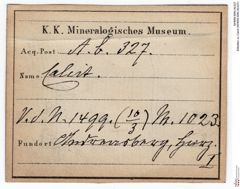 K. K. Mineralogisches Museum.
Acq.-Post A. b. 327.
Name Calcit.
V. d. N. 1499. (10/3) M. 1023
Fundort Andreasberg, Harz.
I